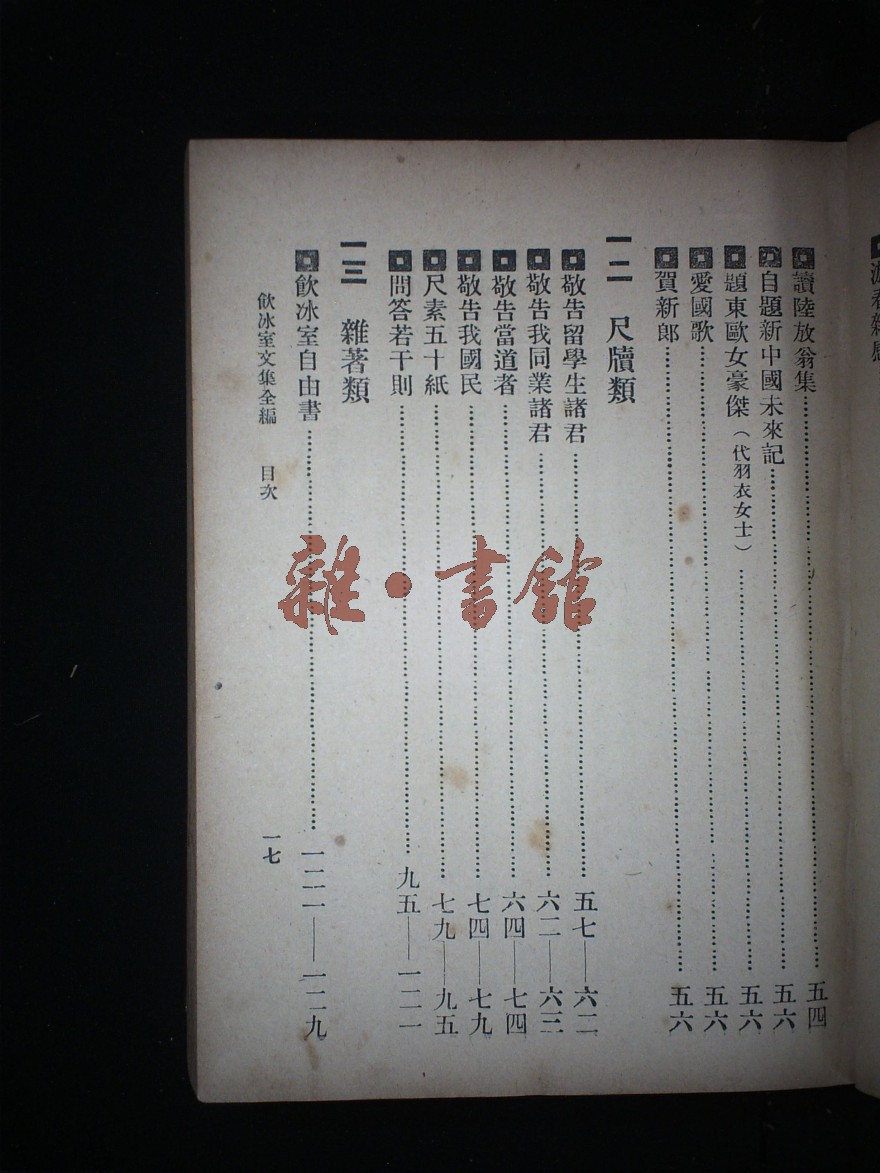 讀陸放翁集……五四
自題新中國未來記……五六
題東歐女豪傑（代羽衣女士）……五六
愛國歌……五六
賀新郎……五六
一二 尺牘類
敬告留學生諸君……五七——六二
敬告我同業諸君……六二——六三
敬告當道者……六四——七四
敬告我國民……七四——七九
尺素五十紙……七九——九五
問答若干則……九五——一二一
一三 雜著類
飲冰室自由書……一二一——一二九
飲冰室文集全編 目次 一七
雜·書館